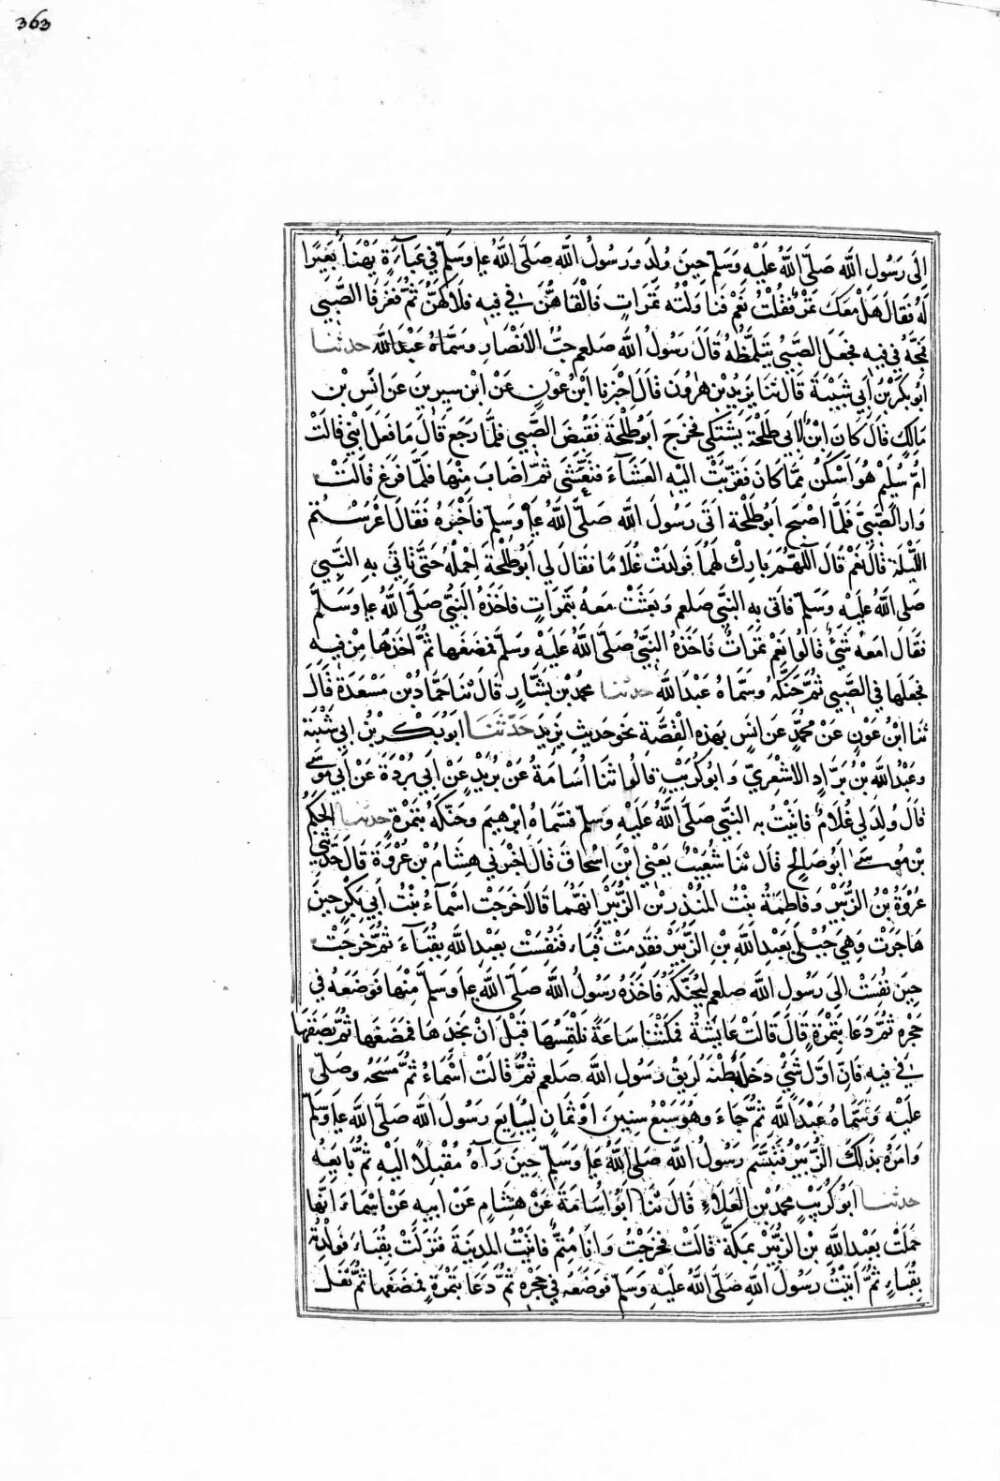 363
الَى رَسُولِ اللَّه صَلَّى اللَّهُ عَلَيْهِ وَسَلَّم حِينَ وُلِدَ وَرَسُولُ اللَّه صَلَّى اللَّهُ ع‍ل‍ وَسَلَّم فِي عَبَآءَةٍ يَهْنَأُ بَعِيرًا
لَهُ فَقَالَ هَلْ مَعَكَ تَمْرٌ فَقُلْتُ نَعَمْ فَنَاوَلْتُه تَمَرَاتٍ فَالْقَاهُنَّ فِي فِيهِ فَلَاكَهُنَّ ثُمَّ فَغَرَفَا الصَّبِيّ
فَمَجَّهُ فِي فِيهِ فَجَعَلَ الصَّبِيُّ يَتَلَمَّظُهُ قَالَ رَسُولُ اللَّه صلعم حُبُّ الْاَنْصَارِ وَسَمَّاهُ عَبْدَ اللَّه حدثنا
ابَوُ بَكْرِ بْنُ اَبِي شَيْبَةَ قَالَ ثَنَا يَزِيدُ بْنُ هٰرُونَ قَالَ اَخْبَرَنَا ابْنُ عَوْنٍ عَنْ ابْنِ سِيرِينَ عَنْ اَنَسِ بْنِ
مَالِكٍ قَالَ كَانَ ابْنٌ لِاَبِي طَلْحَةَ يَشْتَكِي فَخَرَجَ اَبُو طَلْحَةَ فَقُبِضَ الصَّبِيّ فَلَمَّا رَجَعَ قَالَ مَا فَعَلَ ابْنِي قَالَتْ
اُمُّ سُلَيْمٍ هُوَ اَسْكَنُ مِمَّا كَانَ فَقَرَّبَتْ اِلَيْهِ الْعَشَآءَ فَتَعَشَّى ثُمَّ اَصَابَ مِنْهَا فَلَمَّا فَرَغَ قَالَتْ
وَارِ الصَّبِيَّ فَلَمَّا اَصْبَحَ اَبُو طَلْحَة اَتَى رَسُولَ اللَّه صَلَّى اللَّهُ ع‍ل‍ وَسَلَّم فَاَخْبَرَهُ فَقَالَ اَعْرَسْتُمْ
اللَّيْلَةَ قَالَ نَعَمْ قَالَ اللَّهُمَّ بَارِكْ لَهُمَا فَوَلَدَتْ غُلَامًا فَقَالَ لِي اَبُو طَلْحَةَ احْمِلْهُ حَتَّى تَأتِيَ بِهِ النَّبِيّ
صَلَى اللَّهُ عَلَيْهِ وَسَلَّمَ فَاَتَى بِهِ النَّبِيَّ صلعم وَبَعَثَتْ مَعَهُ بِتَمَرَاتٍ فَاَخَذَهُ النَّبِيُّ صَلَّى اللَّهُ ع‍ل‍ وَسَلَّمَ
فَقَالَ اَمَعَهُ شَيْءٌ قَالُوا نَعَمْ تَمَرَاتٌ فَاَخَذَهُ النَّبِيُّ صَلَّى اللَّهُ عَلَيْهِ وَسَلَّم فَمَضَغَهَا ثُمَّ اَخَذَهَا مِنْ فِيهِ
فَجَعَلَهَا فِي الصَّبِيِّ ثُمَّ حَنَّكَهُ وَسَمَّاهُ عَبْدَ اللَّه حدثنا مُحَمَّدُ بْنُ بَشَّارٍ قَالَ ثَنَا حَمَّادُ بْنُ مَسْعَدَةَ قَالَ
ثَنَا ابْنُ عَوْنٍ عَنْ مُحَمَّدٍ عَنْ اَنَسٍ بِهَذِهِ الْقِصَّة نَحْوَ حَدِيثِ يَزِيدَ حَدَّثَنَا اَبُو بَكْرِ بْنُ اَبِي شَيْبَةَ
وَعَبْدُ اللَّه بْنُ بَرَّادٍ الْاَشْعَرِيُّ وَ اَبُو كُرَيْبٍ قَالُوا ثَنَا اُسَامَةُ عَنْ بُرَيْدٍ عَنْ اَبِي بُرْدَةَ عَنْ اَبِي مُوسَى
قَالَ وُلِدَ لِي غُلَامٌ فَاَتَيْتُ بِهِ النَّبِيَّ صَلَّى اللَّهُ عَلَيْهِ وَسَلَّم فَسَمَّاهُ اِبْرٰهِيمَ وَحَنَّكَهُ بِتَمْرَةٍ حدثنا الْحَكَمُ
بْنُ مُوسَى اَبُو صَالِحٍ قَالَ ثَنَا شُعَيْبٌ يَعْنِي ابْنَ اِسْحَاقَ قَالَ اَخْبَرَنِي هِشَامُ بْنُ عُرْوَةَ قَالَ حَدَّثَنِي
عُرْوَةُ بْنُ الزُّبَيْرِ وَفَاطِمَةُ بِنْتُ الْمُنْذِرِ بْنِ الزُّبَيْرِ اَنَّهُمَا قَالَا خَرَجَتْ اَسْمَآءُ بِنْتُ اَبِي بَكْرٍ حِينَ
هَاجَرَتْ وَهِيَ حُبْلَى بِعَبْدِ اللَّهِ بْنِ الزُّبَيْرِ فَقَدِمَتْ قُبَاء فَنُفِسَتْ بِعَبْدِ اللَّهِ بِقُبَآءَ ثُمَّ خَرَجَتْ
حِينَ نُفِسَتْ اِلَى رَسُولِ اللَّه صلعم لِيُحَنِّكَهُ فَاَخَذَهُ رَسُولُ اللَّه صَلَّى اللَّه ع‍ل‍ وَسَلَّم مِنْهَا فَوَضَعَهُ فِي
حَجْرِهِ ثُمَّ دَعَا بِتَمْرَةٍ قَالَ قَالَتْ عَايِشَةُ فَمَكَثْنَا سَاعَةً نَلْتَمِسُهَا قَبْلَ اَنْ نَجِدَهَا فَمَضَغَهَا ثُمَّ بَصَقَهَا
فِي فِيهِ فَاِنَّ اَوَّلَ شَيْءٍ دَخَلَ بَطْنَهُ لَرِيقُ رَسُولِ اللَّه صلعم ثُمَّ قَالَتْ اَسْمَآءُ ثُمَّ مَسَحَهُ وصَلَّى
عَلَيْهِ وَسَمَّاهُ عَبْدَ اللَّه ثُمَّ جَآءَ وَهُوَ سَبْعُ سِنِينَ اَوْ ثَمَانٍ لِيُبَايِعَ رَسُولَ اللَّه صَلَّى اللَّهُ ع‍ل‍ وَسَلَّم
وَاَمَرَهُ بِذَلِكَ الزُّبَيْرُ فَتَبَسَّمَ رَسُولُ اللَّه صَلَى اللَّهُ ع‍ل‍ وَسَلَّم حِينَ رَآهُ مُقْبِلًا اِلَيْهِ ثُمَّ بَايَعَهُ
حدثنا اَبُو كُرَيْبٍ مُحَمَّدُ بْنُ الْعَلَاءِ قَالَ ثَنَا اَبُو اُسَامَةَ عَنْ هِشَامٍ عَنْ اَبِيهِ عَنْ اَسْمَاءَ اَنَّهَا
حَمَلَتْ بِعَبْدِ اللَّه بْنِ الزُّبَيْرِ بِمَكَّةَ قَالَتْ فَخَرَجْتُ وَاَنَا مُتِمٌّ فَاَتَيْتُ الْمَدِينَةَ فَنَزَلْتُ بِقُبَاءَ فَوَلَدْتُهُ
بِقُبَاءٍ ثُمَّ اَتَيْتُ رَسُولَ اللَّهِ صَلَّى اللَّهُ عَلَيْهِ وَسَلَّمَ فَوَضَعَهُ فِي حَجْرِهِ ثُمَّ دَعَا بِتَمْرَةٍ فَمَضَغَهَا ثُمَّ تَفَلَ